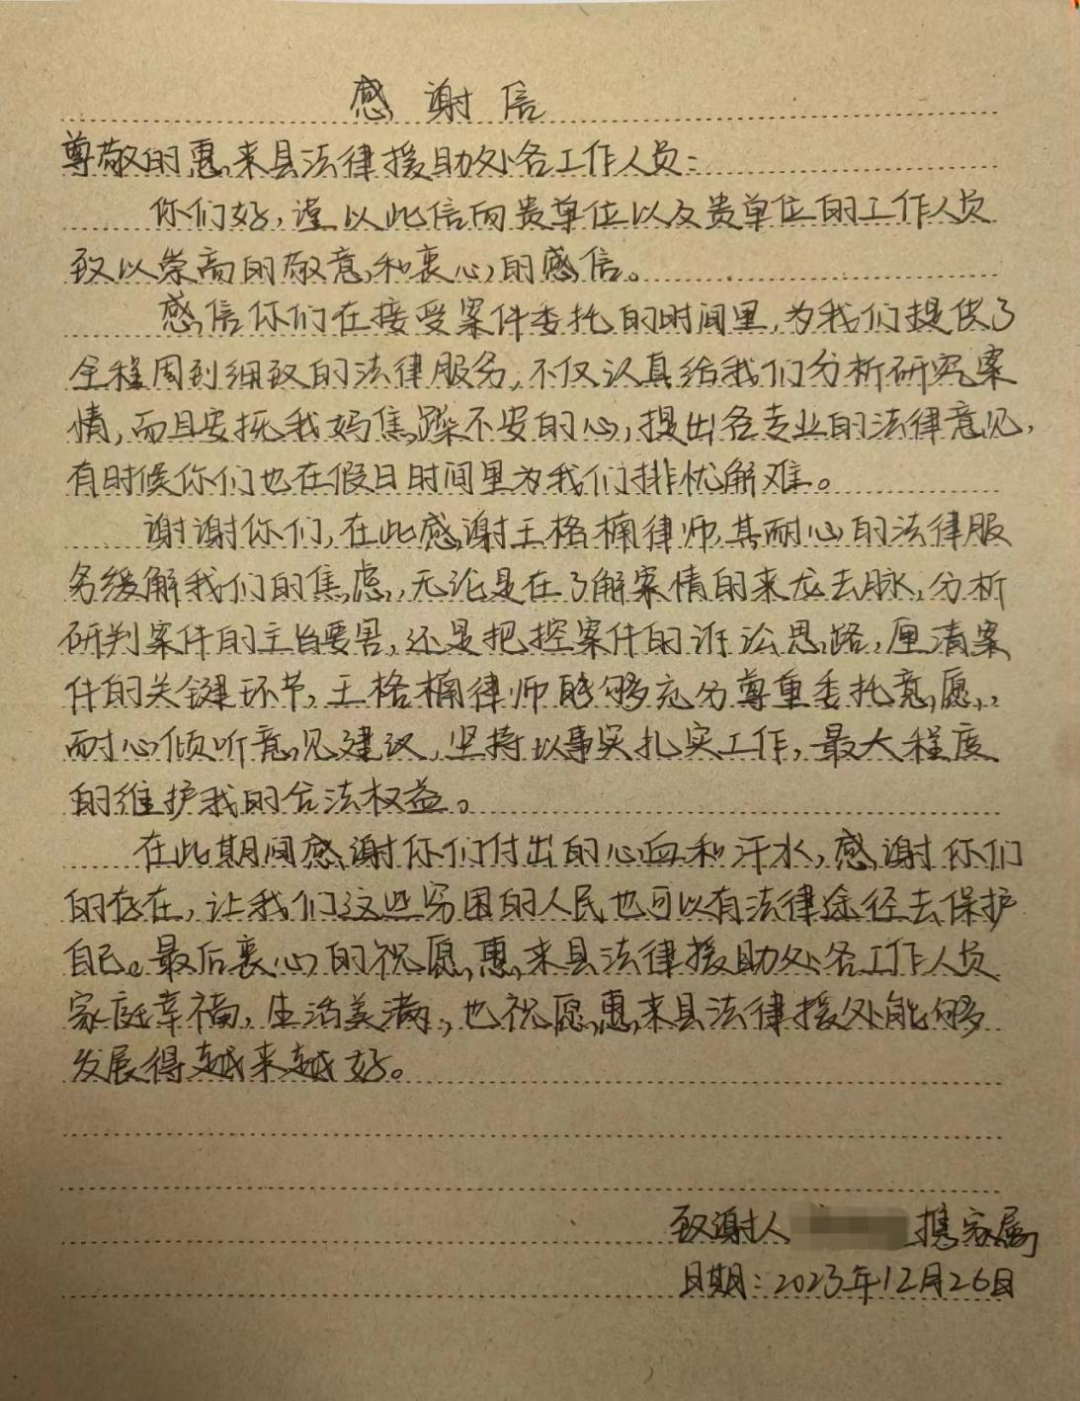 感谢信
尊敬的惠来县法律援助处各工作人员：
你们好，谨以此信向贵单位以及贵单位的工作人员
致以崇高的敬意和衷心的感信。
感信你们在接受案件委托的时间里，为我们提供了
全程周到细致的法律服务，不仅认真给我们分析研究案
情，而且安抚我妈焦躁不安的心，提出各专业的法律意见，
有时候你们也在假日时间里为我们排忧解难。
谢谢你们，在此感谢王格楠律师，其耐心的法律服
务缓解我们的焦虑，无论是在了解案情的来龙去脉，分析
研判案件的主旨要害，还是把控案件的诉讼思路，厘清案
件的关键环节，王格楠律师能够充分尊重委托意愿，
耐心倾听意见建议，坚持以事实扎实工作，最大程度
的维护我的合法权益。
在此期间感谢你们付出的心血和汗水，感谢你们
的存在，让我们这些穷困的人民也可以有法律途径去保护
自己。最后衷心的祝愿惠来县法律援助处各工作人员
家庭幸福，生活美满，也祝愿惠来县法律援处能够
发展得越来越好。
致谢人 携家属
日期：2023年12月26日